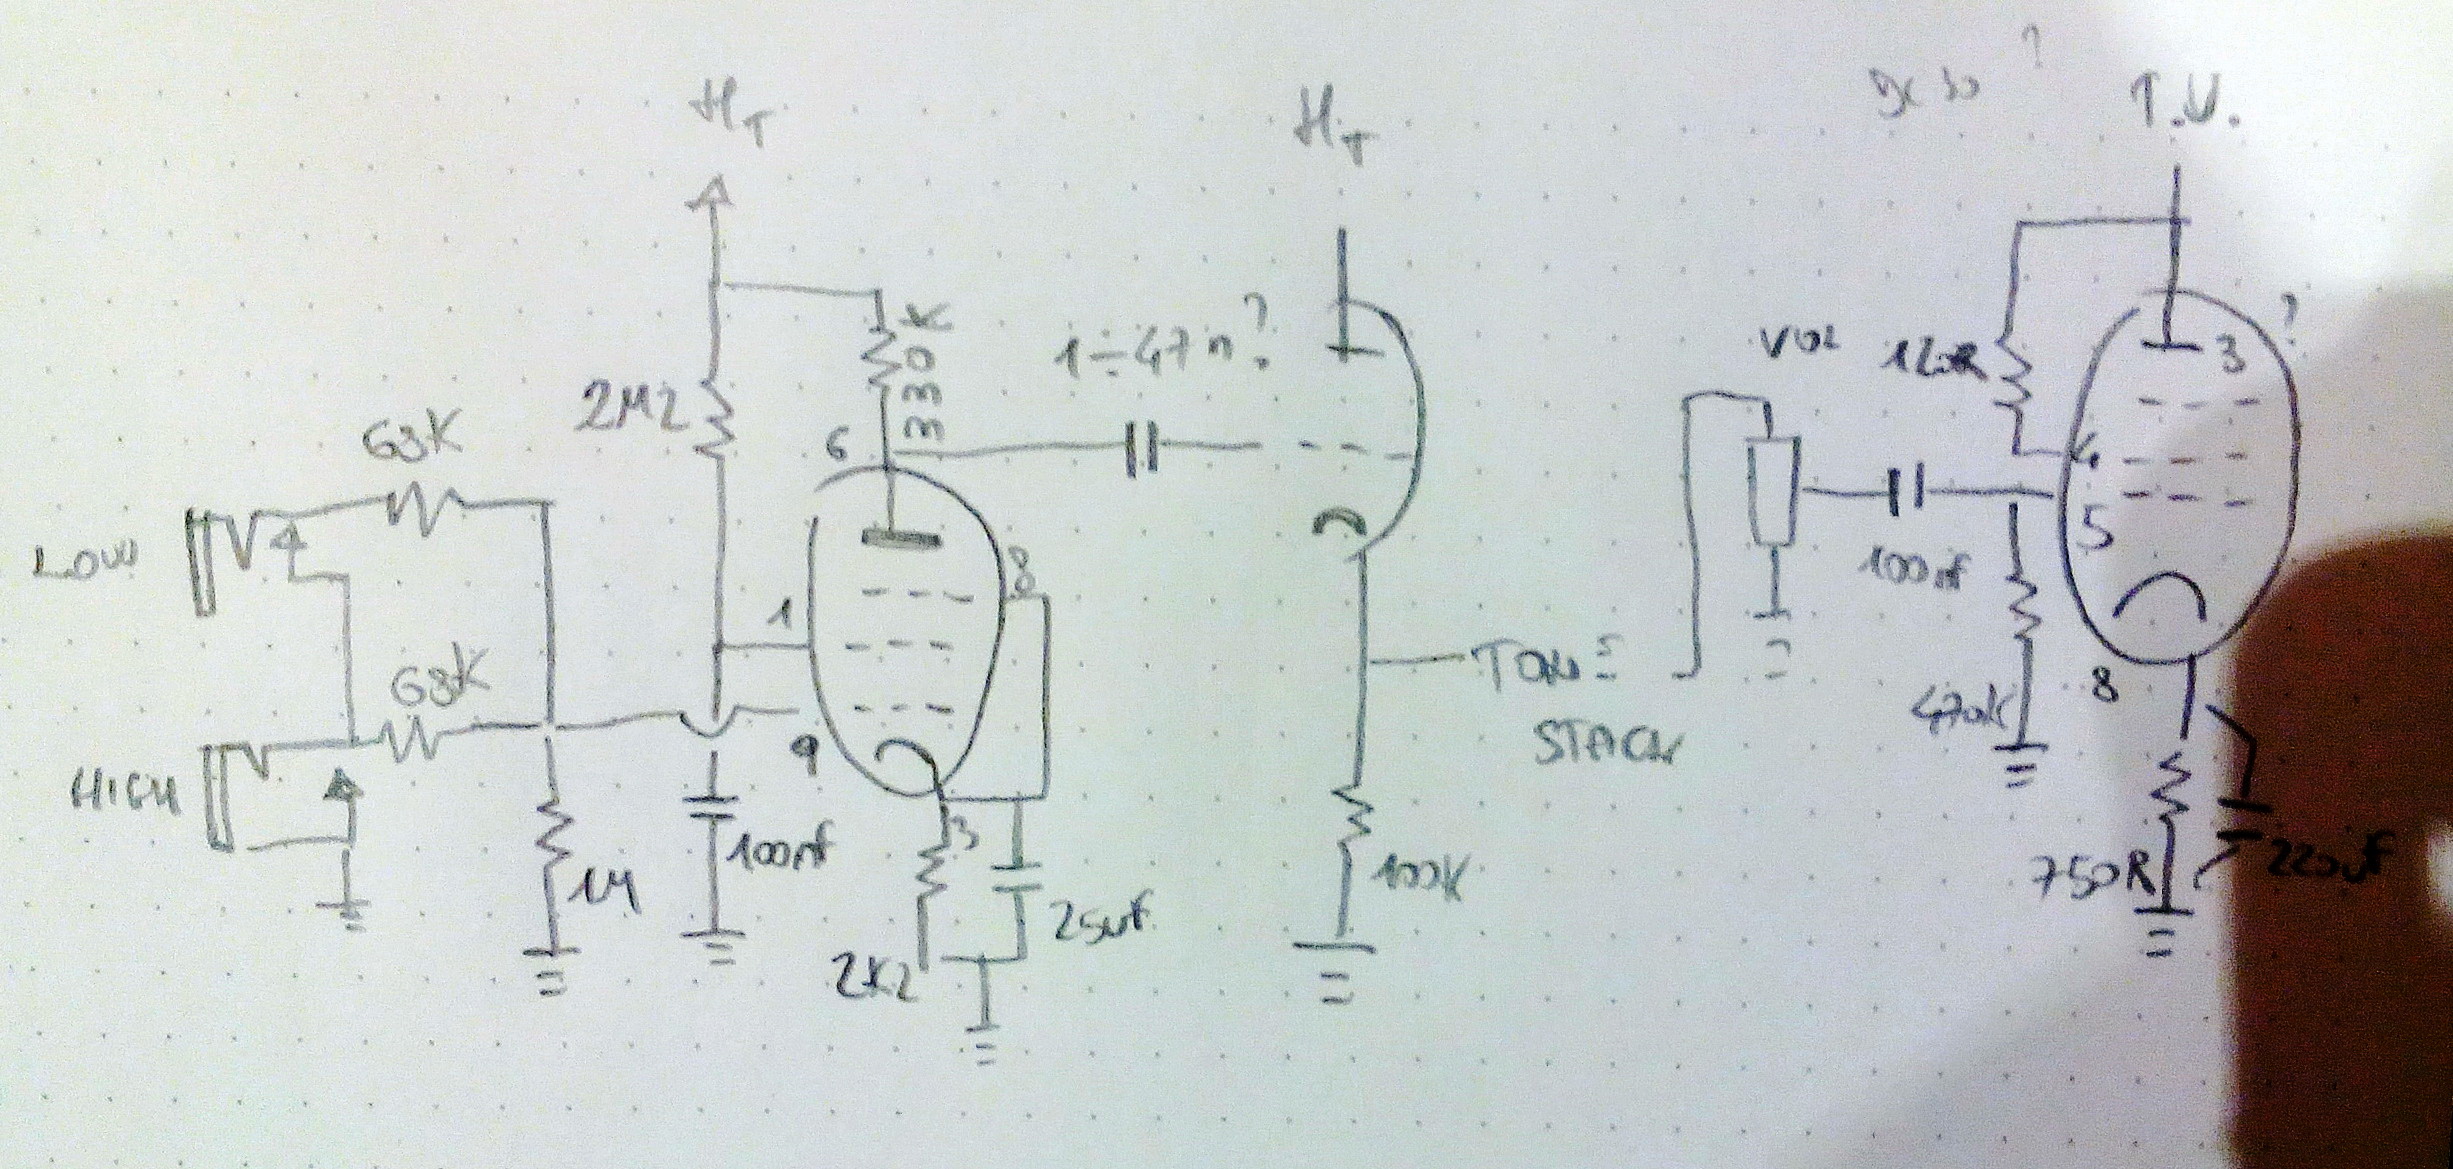 HT
HT
?
T.U.
330K
1÷47n?
?
VOL
120R
3
2M2
68K
6
4
LOW
8
5
100nf
1
TONE
STACK
68K
9
8
470K
HIGH
3
100nf
1M
100K
750R
220uF
2K2
25uf